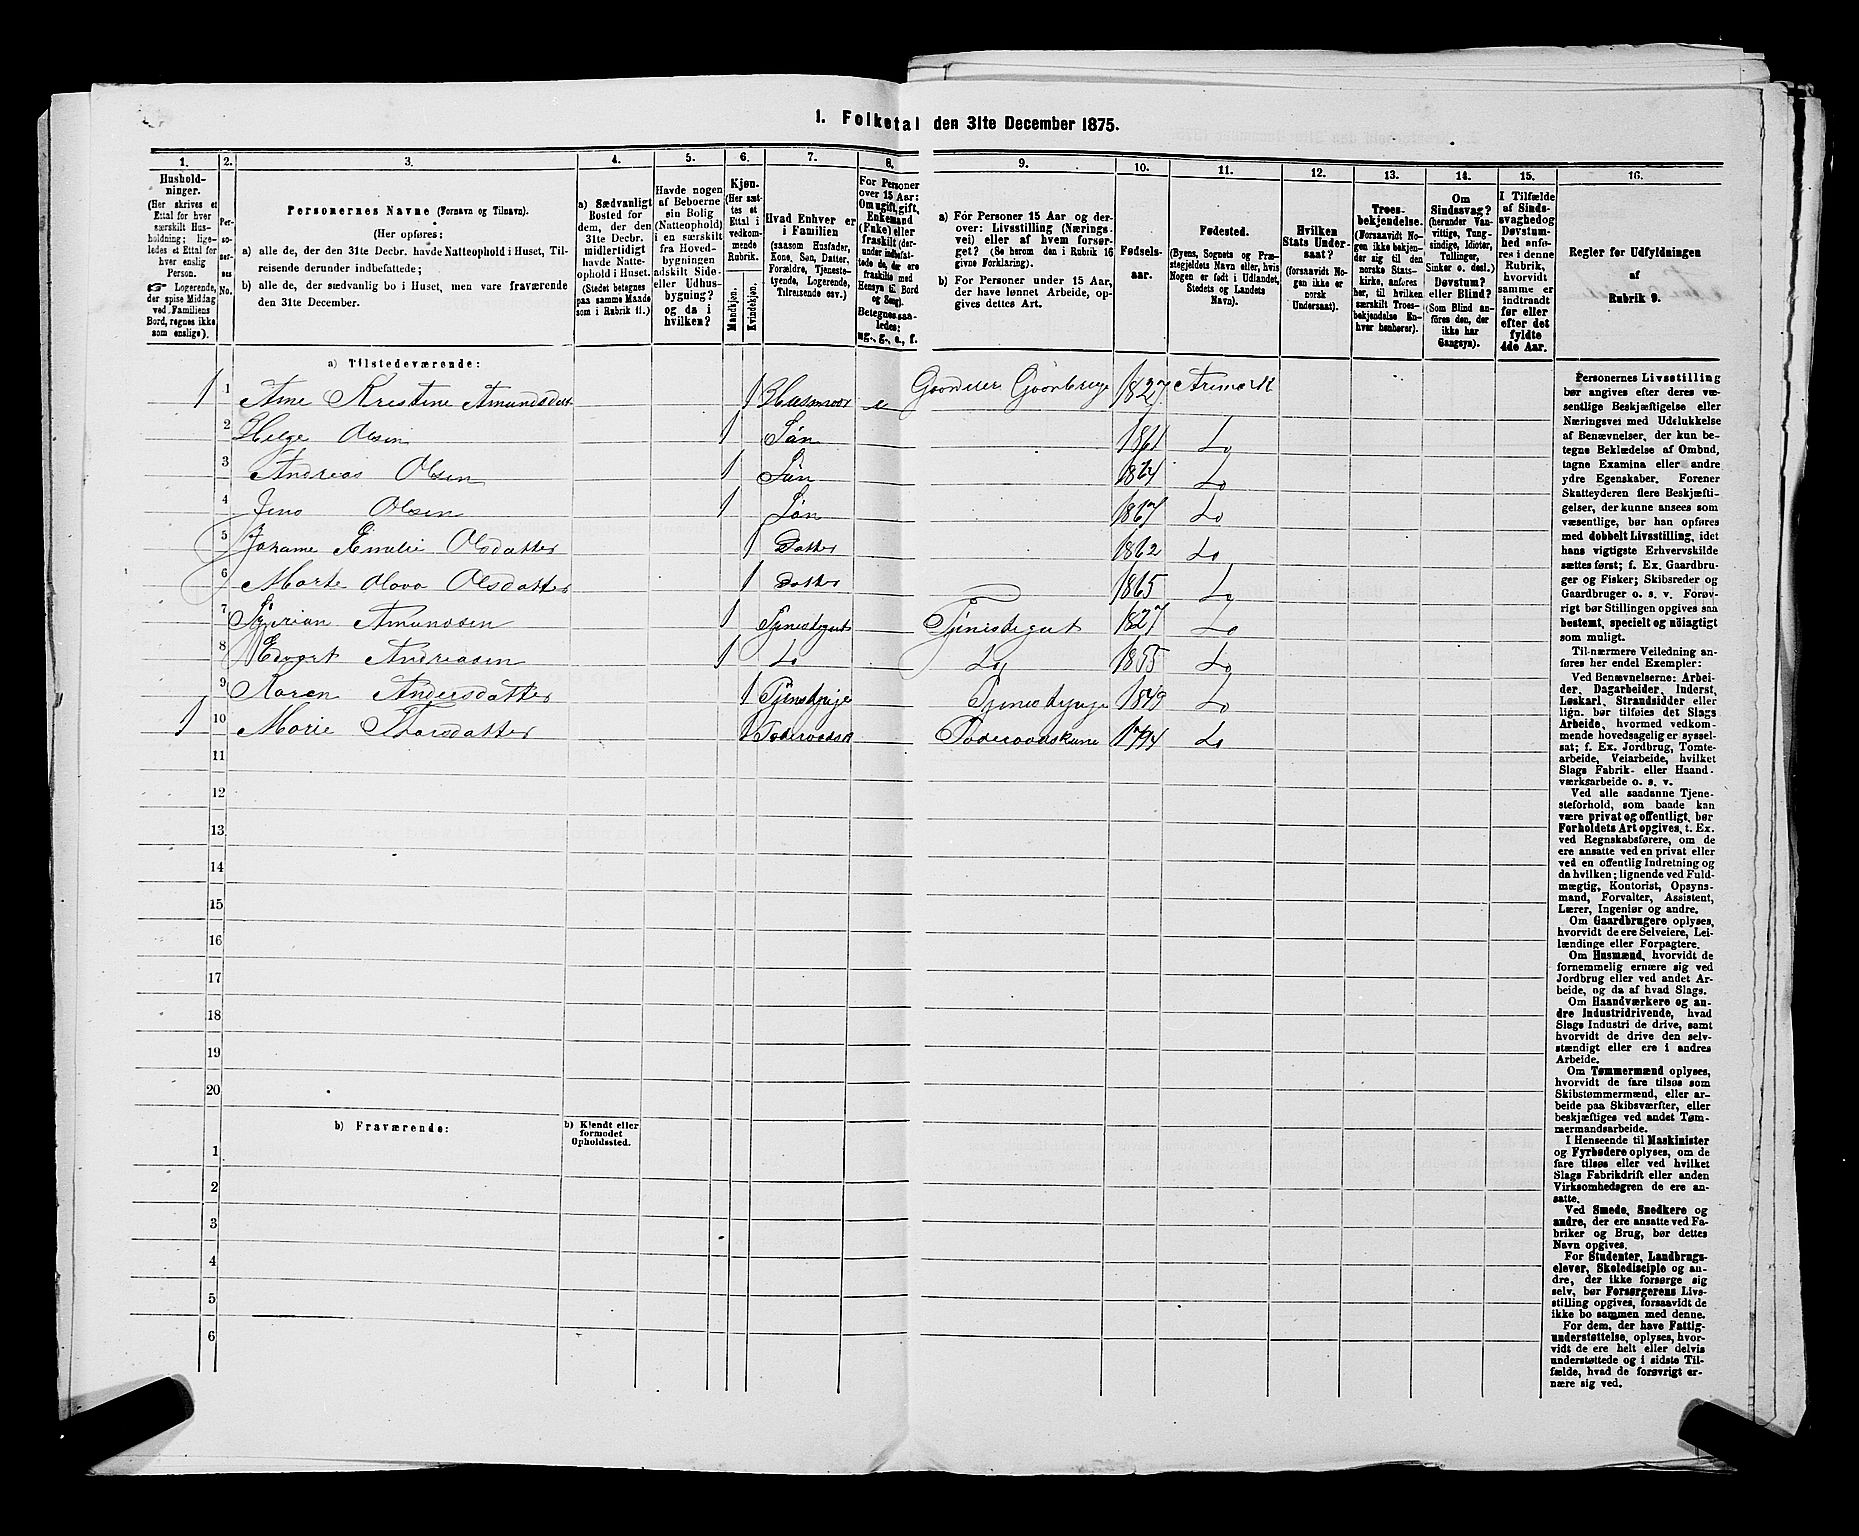 1. Folketal den 31te December 1875.
1. 2. 3. 4. 5. 6. 7. 8. 9. 10. 11. 12. 13. 14. 15. 16.
Hushold-
ninger.
(Her skrives et
Ettal for hver
særskilt Hus-
holdning; lige-
ledes et Ettal for
hver enslig
Person.
☞ Logerende,
der spise Middag
ved Familiens
Bord, regnes ikke
som enslige).
Per-
so-
ner-
nes
No.
Personernes Navne (Fornavn og Tilnavn).
(Her opføres:
a) alle de, der den 31te Decbr. havde Natteophold i Huset, Til-
reisende derunder indbefattede;
b) alle de, der sædvanlig bo i Huset, men vare fraværende
den 31te December.
a) Sædvanligt
Bosted for
dem, der den
31te Decbr.
midlertidigt
havde Natte-
ophold i Huset.
(Stedet betegnes
paa samme Maade
som i Rubrik 11.)
Havde nogen
af Beboerne
sin Bolig
(Natteophold)
i en særskilt
fra Hoved-
bygningen
adskilt Side-
eller Udhus-
bygning?
og da i
hvilken?
Kjøn.
(Her sæt-
tes et
Ettal i
vedkom-
mende
Rubrik.
Mandkjøn.
Kvindekjøn.
Hvad Enhver er
i Familien
(saasom Husfader,
Kone, Søn, Datter,
Forældre, Tjeneste-
tyende, Logerende,
Tilreisende osv.)
For Personer
over 15 Aar:
Om ugift, gift,
Enkemand
(Enke) eller
fraskilt (der-
under indbefat-
tede de, der ere
fraskilte med
Hensyn til Bord
og Seng).
Betegnes saa-
ledes:
ug., g., e., f.
a) For Personer 15 Aar og der-
over: Livsstilling (Nærings-
vei) eller af hvem forsør-
get? (Se herom den i Rubrik 16
givne Forklaring).
b) For Personer under 15 Aar,
der have lønnet Arbeide, op-
gives dettes Art.
Fødsels-
aar.
Fødested.
(Byens, Sognets og Præ-
stegjeldets Navn eller, hvis
Nogen er født i Udlandet,
Stedets og Landets
Navn).
Hvilken
Stats Under-
saat?
(forsaavidt No-
gen ikke er
norsk
Undersaat).
Troes-
bekjendelse.
(Forsaavidt No-
gen ikke bekjen-
der sig til den
norske Stats-
kirke, anføres
her, til hvilken
særskilt Troes-
bekjendelse En-
hver henhører).
Om
Sindssvag?
(herunder Van-
vittige, Tung-
sindige, Idioter,
Tullinger,
Sinker o. desl.)
Døvstum?
eller Blind?
(Som Blind an-
føres den, der
ikke har
Gangsyn).
I Tilfælde
af Sinds-
svaghed og
Døvstum-
hed anfø-
res i denne
Rubrik,
hvorvidt
samme er
indtraadt
før eller
efter det
fyldte
4de Aar.
Regler for Udfyldningen
af
Rubrik 9.
a) Tilstedeværende:
1 1 Ane Kristine Amundsdat 1 Husmoer e Gaardeier Gaardbruge 1827 Aremark
2 Helge Olsen 1 Søn 1861 Do
3 Andreas Olsen 1 Søn 1864 Do
4 Jens Olsen 1 Søn 1867 Do
5 Johanne Emelie Olsdatter 1 Datter 1862 Do
6 Marte Olava Olsdatter 1 Datter 1865 Do
7 Amundsen 1 Tjenestegut Tjenestegut 1827 Do
8 Edvart Andreasen 1 Do Do 1855 Do
9 Karen Andersdatter 1 Tjenstpige Tjenestepige 1849 Do
1 10 Marie Thorsdatter 1 Foderaadsk Foderaadskone 1794 Do
11
12
13
14
15
16
17
18
19
20
b) Fraværende: b) Kjendt eller
formodet
Opholdssted.
1
2
3
4
5
6
Personernes Livsstilling
bør angives efter deres væ-
sentlige Beskjæftigelse eller
Næringsvei med Udelukkelse
af Benævnelser, der kun be-
tegne Beklædelse af Ombud,
tagne Examina eller andre
ydre Egenskaber. Forener
Skatteyderen flere Beskjæfti-
gelser, der kunne ansees som
væsentlige, bør han opføres
med dobbelt Livsstilling, idet
hans vigtigste Erhvervskilde
sættes først; f. Ex. Gaardbru-
ger og Fisker; Skibsreder og
Gaardbruger o. s. v. Forøv-
rigt bør Stillingen opgives saa
bestemt, specielt og nøiagtigt
som muligt.
Til nærmere Veiledning an-
føres her endel Exempler:
Ved Benævnelserne: Arbei-
der, Dagarbeider, Inderst,
Løskarl, Strandsidder eller
lign. bør tilføies det Slags
Arbeide, hvormed vedkom-
mende hovedsagelig er syssel-
sat; f. Ex. Jordbrug, Tomte-
arbeide, Veiarbeide, hvilket
Slags Fabrik- eller Haand-
værksarbeide o. s. v.
Ved alle saadanne Tjene-
steforhold, som baade kan
være privat og offentligt, bør
Forholdets Art opgives, t. Ex.
ved Regnskabsførere, om de
ere ansatte ved en privat eller
ved en offentlig Indretning og
da hvilken; lignende ved Fuld-
mægtig, Kontorist, Opsyns-
mand, Forvalter, Assistent,
Lærer, Ingeniør og andre.
Om Gaardbrugere oplyses,
hvorvidt de ere Selveiere, Lei-
lændinge eller Forpagtere.
Om Husmænd, hvorvidt de
fornemmelig ernære sig ved
Jordbrug eller ved andet Ar-
beide, og da af hvad Slags.
Om Haandværkere og an-
dre Industridrivende, hvad
Slags Industri de drive, samt
hvorvidt de drive den selv-
stændigt eller ere i andres
Arbeide.
Om Tømmermænd oplyses,
hvorvidt de fare tilsøs som
Skibstømmermænd, eller ar-
beide paa Skibsværfter, eller
beskjæftiges ved andet Tøm-
mermandsarbeide.
I Henseende til Maskinister
og Fyrbødere oplyses, om de
fare tilsøs eller ved hvilket
Slags Fabrikdrift eller anden
Virksomhedsgren de ere an-
satte.
Ved Smede, Snedkere og
andre, der ere ansatte ved Fa-
briker og Brug, bør dettes
Navn opgives.
For Studenter, Landbrugs-
elever, Skoledisciple og an-
dre, der ikke forsørge sig
selv, bør Forsørgerens Livs-
stilling opgives, forsaavidt de
ikke bo sammen med denne.
For dem, der have Fattig-
understøttelse, oplyses, hvor-
vidt de ere helt eller delvis
understøttede og i sidste Til-
fælde, hvad de forøvrigt er-
nære sig ved.